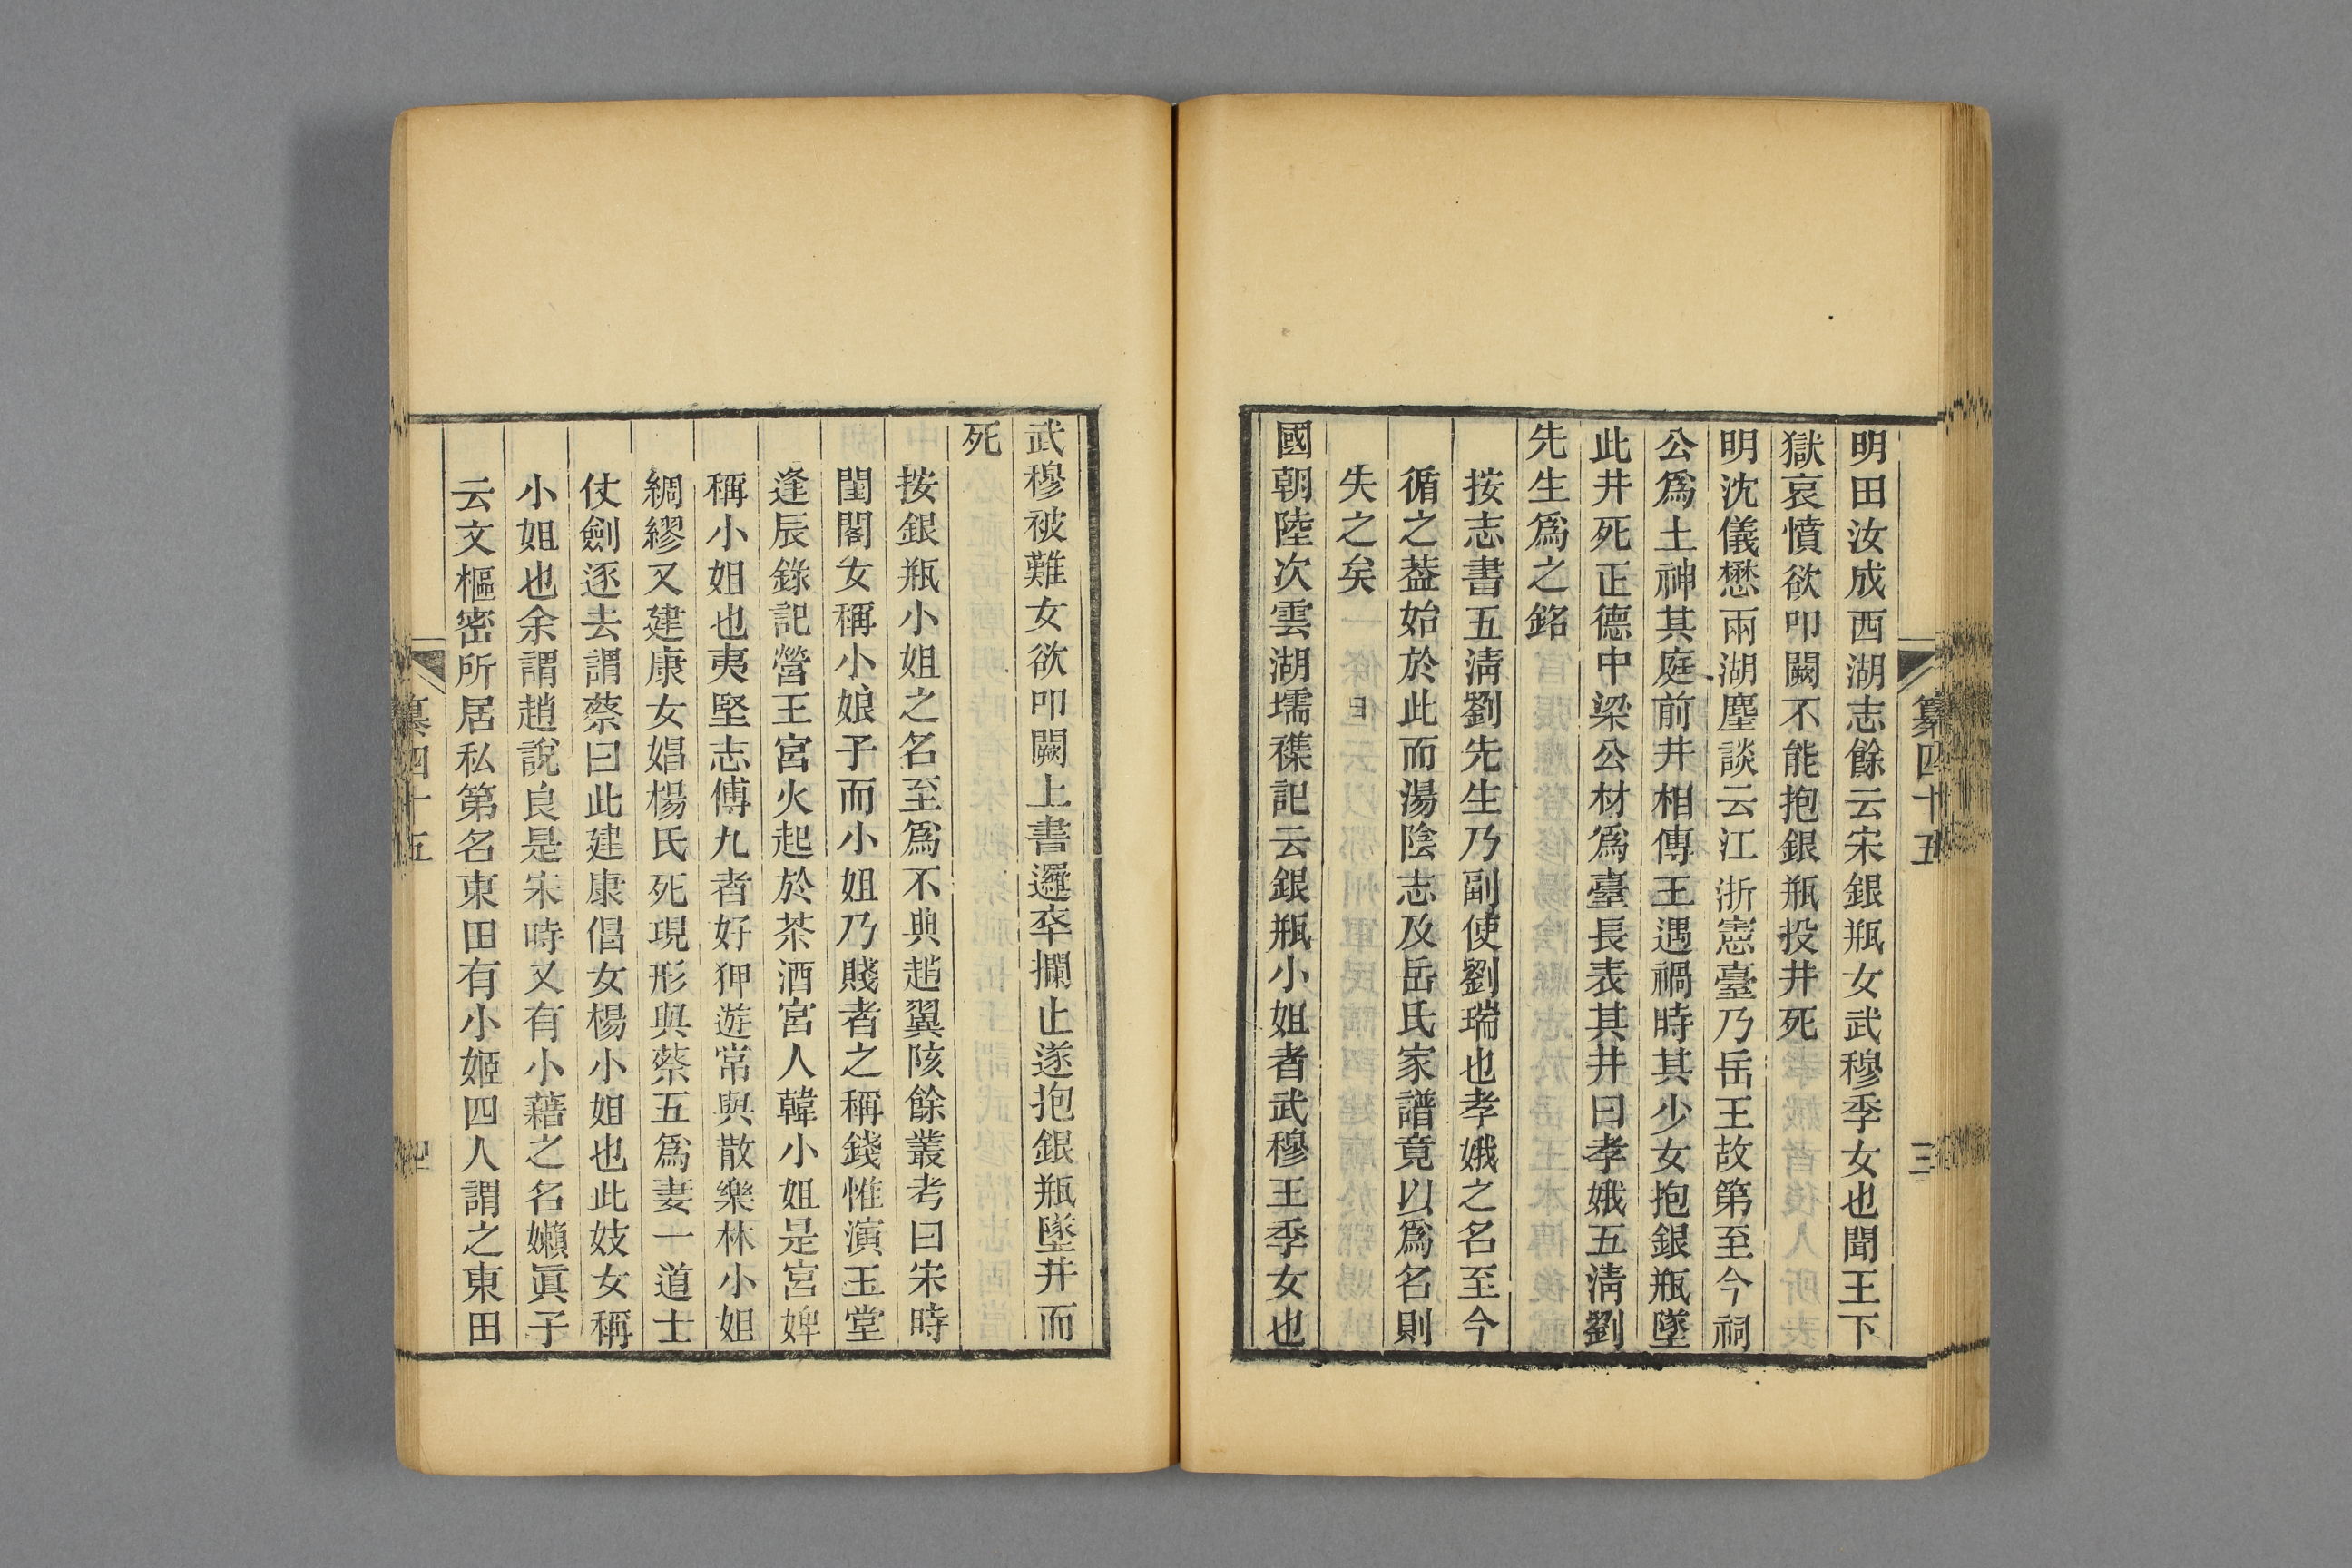 明田汝成西湖志餘云宋銀瓶女武穆季女也聞王下
獄哀憤欲叩闕不能抱銀瓶投井死
明沈儀懋兩湖麈談云江浙憲臺乃岳王故第至今祠
公爲土神其庭前井相傳王遇禍時其少女抱銀瓶墜
此井死正德中梁公材爲臺長表其井曰孝娥五淸劉
先生爲之銘
按志書五淸劉先生乃副使劉瑞也孝娥之名至今
循之葢始於此而湯陰志及岳氏家譜竟以爲名則
失之矣
國朝陸次雲湖壖襍記云銀瓶小姐者武穆王季女也
武穆被難女欲叩闕上書邏卒攔止遂抱銀瓶墜井而
死
按銀瓶小姐之名至爲不典趙翼陔餘叢考曰宋時
閨閣女稱小娘子而小姐乃賤者之稱錢惟演玉堂
逢辰錄記營王宮火起於茶酒宮人韓小姐是宮婢
稱小姐也夷堅志傅九者好狎遊常與散樂林小姐
綢繆又建康女娼楊氏死現形與蔡五爲妻一道士
仗劍逐去謂蔡曰此建康倡女楊小姐也此妓女稱
小姐也余謂趙說良是宋時又有小藉之名嬾眞子
云文樞密所居私第名東田有小姬四人謂之東田
纂四十五
三
四十五